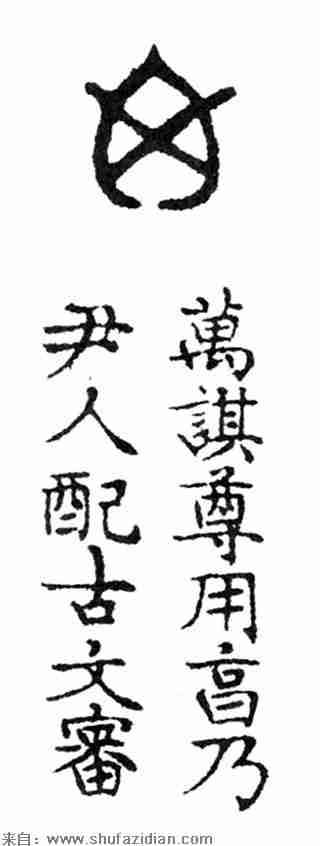 萬諆尊用亯乃
尹人配古文審
来自：www.shufazidian.com